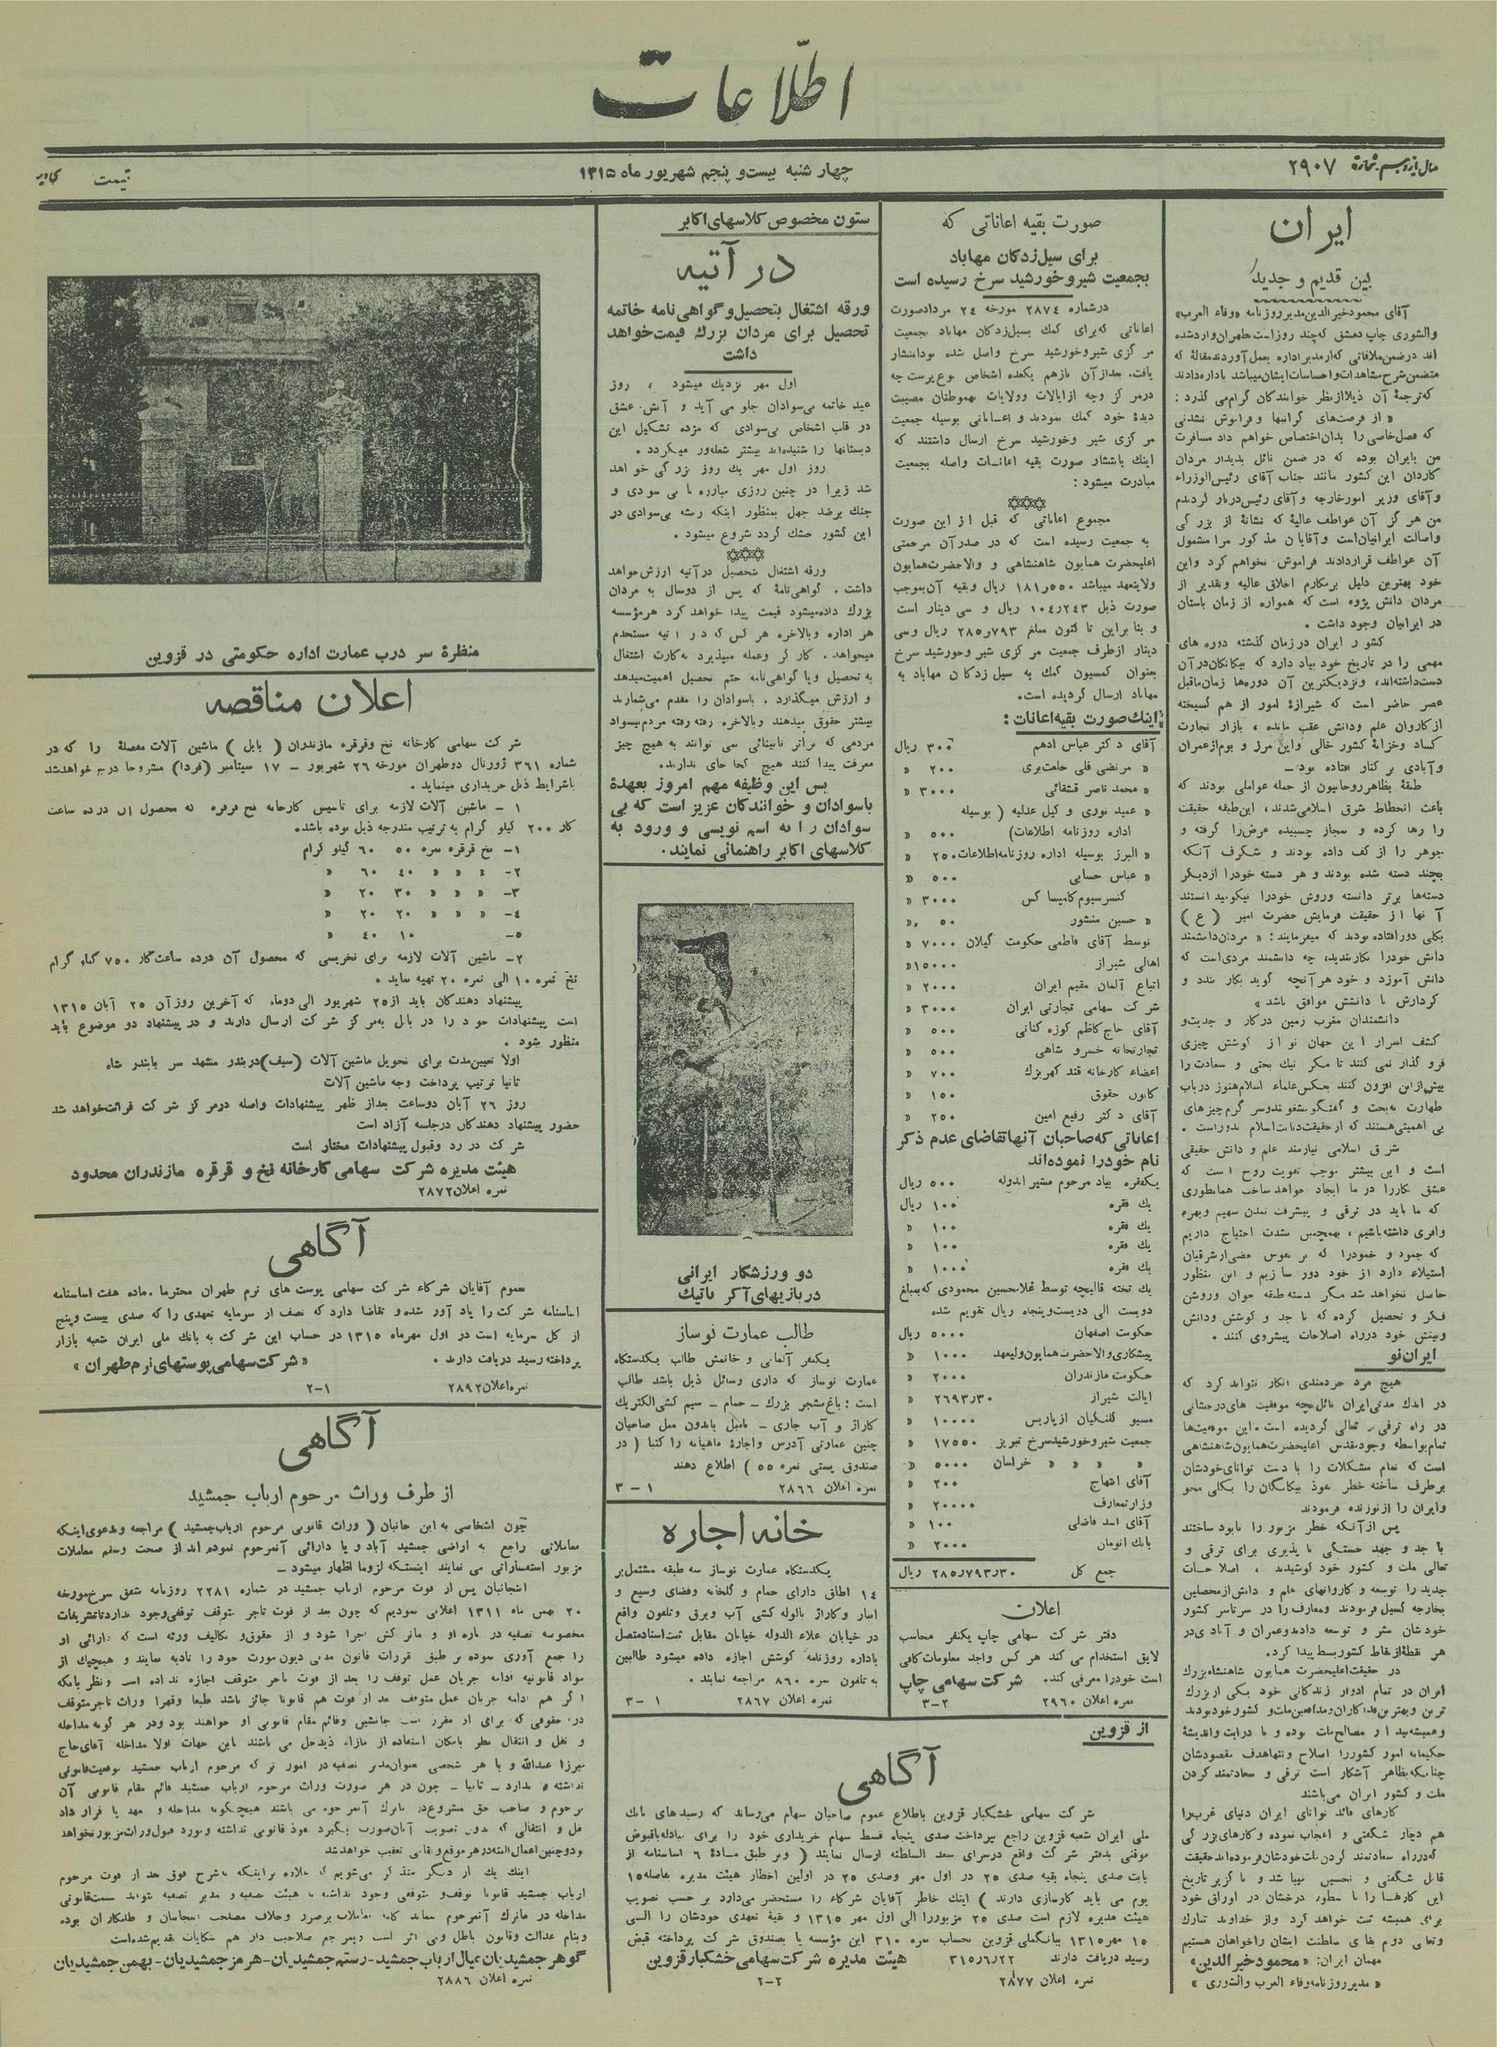 اطلاعات
سال یازدهم شماره ۲۹۰۷
چهار شنبه بیست و پنجم شهریور ماه ۱۳۱۵
قیمت
ایران
بین قدیم و جدید
آقای محمود خیرالدین مدیر روزنامه «وفاء العرب»
والشوری چاپ دمشق که چند روز است طهران وارد شده
اند در ضمن ملاقاتی که از مدیر اداره بعمل آوردند مقالهٔ که
متضمن شرح مشاهدات و احساسات ایشان میباشد باداره دادند
که ترجمهٔ آن ذیلا از نظر خوانندگان گرام می گذرد :
« از فرصت‌های گرانبها و فراموش نشدنی
که فصل خاصی را بدان اختصاص خواهم داد مسافرت
من بایران بوده که در ضمن نائل بدیدار مردان
کاردان این کشور مانند جناب آقای رئیس الوزراء
و آقای وزیر امور خارجه و آقای رئیس دربار گردیدم
من هر گز آن عواطف عالیه که نشانهٔ از بزرگی
واصالت ایرانیان است و آقایان مذکور مرا مشمول
آن عواطف قرار دادند فراموش نخواهم کرد و این
خود بهترین دلیل بر مکارم اخلاق عالیه و تقدیر از
مردان دانش پژوه است که همواره از زمان باستان
در ایرانیان وجود داشت .
کشور ایران در زمان گذشته دوره های
مهمی را در تاریخ خود بیاد دارد که بیگانگان در آن
دست داشته‌اند، و نزدیکترین آن دوره‌ها زمان ماقبل
عصر حاضر است که شیرازهٔ امور از هم گسیخته
از کاروان علم و دانش عقب مانده ، بازار تجارت
کساد و خزانهٔ کشور خالی و این مرز و بوم از عمران
و آبادی بر کنار افتاده بود .
طبقهٔ بظاهر روحانیون از جمله عواملی بودند که
باعث انحطاط شرق اسلامی شدند ، این طبقه حقیقت
را رها کرده و بمجاز چسبیده عرض را گرفته و
جوهر را از کف داده بودند و شگرف آنکه
بچند دسته شده بودند و هر دسته خود را از دیگر
دسته‌ها برتر دانسته و روش خود را نیکو میدانستند
آنها از حقیقت فرمایش حضرت امیر ( ع )
بکلی دور افتاده بودند که میفرمایند : « مردان دانشمند
دانش خود را بکار بندید، چه دانشمند مردی است که
دانش آموزد و خود هر آنچه گوید بکار بندد و
کردارش با دانشش موافق باشد »
دانشمندان مغرب زمین در کار و جدیت و
کشف اسرار این جهان نو از کوشش چیزی
فرو گذار نمی کنند تا مگر نیک بختی و سعادت را
بیش از این افزون کنند بعکس علماء اسلام هنوز در باب
طهارت به بحث و گفتگو مشغولند و سر گرم چیزهای
بی اهمیتی هستند که از حقیقت دیانت اسلام بدور است .
شرق اسلامی نیازمند علم و دانش حقیقی
است و این بیشتر موجب تقویت روح است که
عشق کار را در ما ایجاد خواهد ساخت همانطوری
که ما باید در ترقی و پیشرفت تمدن سهیم و بهره
وافری داشته باشیم ، بهمچنین بشدت احتیاج داریم
که جمود و خمود را که بر نفوس بعضی از شرقیان
استیلاء دارد از خود دور سازیم و این منظور
حاصل نخواهد شد مگر بدسته طبقه جوان و روشن
فکر و تحصیل کرده که با جد و کوشش و دانش
و بینش خود در راه اصلاحات پیشروی کنند .
ایران نو
هیچ مرد خردمندی انکار نتواند کرد که
در اندک مدتی ایران نائل بچه موفقیت های درخشانی
در راه ترقی و تعالی گردیده است . این موفقیت‌ها
تمام بواسطه وجود مقدس اعلیحضرت همایون شاهنشاهی
است که تمام مشکلات را با دست توانای خودشان
برطرف ساخته خطر نفوذ بیگانگان را بکلی محو
و ایران را از نو زنده فرمودند
پس از آنکه خطر مزبور را نابود ساختند
با جد و جهد خستگی نا پذیری برای ترقی و
تعالی ملت و کشور خود کوشیدند ، اصلاحات
جدید را توسعه و کاروانهای علم و دانش از محصلین
بخارجه گسیل فرمودند و معارف را در سرتاسر کشور
خودشان نشر و توسعه دادند و عمران و آبادی در
هر نقطه از نقاط کشور بسط پیدا کرد .
در حقیقت اعلیحضرت همایون شاهنشاه بزرگ
ایران در تمام ادوار زندگانی خود یکی از بزرگ
ترین و بهترین فداکاران و مدافعین ملت و کشور خود بودند
و همیشه بیدار مصالح ملت بوده و با درایت و اندیشهٔ
حکیمانه امور کشور را اصلاح و تنها هدف مقصودشان
چنانکه بظاهر آشکار است ترقی و سعادتمند کردن
ملت و کشور ایران می‌باشد
کارهای قائد توانای ایران دنیای غرب را
هم دچار شگفتی و اعجاب نموده و کارهای بزرگی
که در راه سعادتمند کردن ملت خودشان فرموده‌اند حقیقت
قابل شگفتی و تحسین میباشد و نا گزیر تاریخ
این کارها را با سطور درخشان در اوراق خود
برای همیشه ثبت خواهد کرد و از خداوند تبارک
و تعالی دوام بقای سلطنت ایشان را خواهان هستیم
مهمان ایران : «محمود خیر الدین»
« مدیر روزنامه وفاء العرب والشوری »
صورت بقیه اعاناتی که
برای سیل زدگان مهاباد
بجمعیت شیر و خورشید سرخ رسیده است
در شماره ۲۸۷۴ مورخه ۲۴ مرداد صورت
اعاناتی که برای کمک بسیل زدگان مهاباد بجمعیت
مرکزی شیر و خورشید سرخ واصل شده بود انتشار
یافت. بعد از آن بازهم یکعده اشخاص نوع پرست چه
در مرکز و چه از ایالات و ولایات بهموطنان مصیبت
دیدهٔ خود کمک نمودند و اعاناتی بوسیله جمعیت
مرکزی شیر و خورشید سرخ ارسال داشتند که
اینک بانتشار صورت بقیه اعانات واصله بجمعیت
مبادرت میشود :
مجموع اعاناتی که قبل از این صورت
به جمعیت رسیده است که در صدر آن مرحمتی
اعلیحضرت همایون شاهنشاهی و والاحضرت همایون
ولایتعهد میباشد ۱۸۱٫۵۵۰ ریال و بقیه آن بموجب
صورت ذیل ۱۰۴٫۲۴۳ ریال و سی دینار است
و بنا براین تا کنون مبلغ ۲۸۵٫۷۹۳ ریال و سی
دینار از طرف جمعیت مرکزی شیر و خورشید سرخ
بعنوان کمسیون کمک به سیل زدگان مهاباد به
مهاباد ارسال گردیده است.
اینك صورت بقیه اعانات :
آقای دکتر عباس ادهم ۳۰۰ ریال
« مرتضی قلی خلعت بری ۲۰۰ «
« محمد ناصر قشقائی ۳۰۰۰ «
« عمید نوری و کیل عدلیه ( بوسیله
اداره روزنامه اطلاعات) ۵۰۰ «
« البرز بوسیله اداره روزنامه اطلاعات ۲۵۰ «
« عباس حسابی ۵۰۰ «
کنسرسیوم کامپساکس ۳۰۰۰ «
« حسین منشور ۵۰ «
توسط آقای فاطمی حکومت گیلان ۷۰۰۰ «
اهالی شیراز ۱۵۰۰۰ «
اتباع آلمان مقیم ایران ۲۰۰۰ «
شرکت سهامی تجارتی ایران ۳۰۰۰ «
آقای حاج کاظم کوزه کنانی ۵۰۰ «
تجارتخانه خسرو شاهی ۵۰۰ «
اعضاء کارخانه قند کهریزک ۷۰۰ «
کانون حقوق ۱۵۰ «
آقای دکتر رفیع امین ۲۵۰ «
اعاناتی که صاحبان آنها تقاضای عدم ذکر
نام خود را نموده‌اند
یکفقره بیاد مرحوم مشیر الدوله ۵۰۰ ریال
یك فقره ۱۰۰ ریال
یك فقره ۱۰۰ «
یك فقره ۱۰۰ «
یك فقره ۱۰۰۰ «
یك تخته قالیچه توسط غلامحسین محمودی که بمبلغ
دویست الی دویست و پنجاه ریال تقویم شده
حکومت اصفهان ۵۰۰۰ ریال
پیشکاری والاحضرت همایون ولیعهد ۱۰۰۰ «
حکومت مازندران ۲۰۰۰ «
ایالت شیراز ۲۶۹۳٫۳۰ «
مسیو گلبنگیان از پاریس ۱۰۰۰۰ «
جمعیت شیر و خورشید سرخ تبریز ۱۷۵۵۰ «
« « « « خراسان ۵۰۰۰ «
آقای ابتهاج ۲۰۰ «
وزارت معارف ۲۰۰۰۰ «
آقای اسد فاضلی ۱۰۰ «
بانك ۲۰۰۰ «
جمع کل ۲۸۵٫۷۹۳٫۳۰ ریال
اعلان
دفتر شرکت سهامی چاپ یکنفر محاسب
لایق استخدام می کند هر کس واجد معلومات کافی
است خود را معرفی کند. شرکت سهامی چاپ
نمره اعلان ۲۹۶۰ ۲-۳
ستون مخصوص کلاسهای اکابر
در آتیه
ورقه اشتغال بتحصیل و گواهی نامه خاتمه
تحصیل برای مردان بزرك قیمت خواهد
داشت
اول مهر نزدیك میشود ، روز
عید خاتمه بی‌سوادان جلو می آید و آتش عشق
در قلب اشخاص بی‌سوادی که مژده تشکیل این
دبستانها را شنیده‌اند بیشتر شعله‌ور میگردد .
روز اول مهر یك روز بزرگی خواهد
شد زیرا در چنین روزی مبارزه با بی سودی و
جنك برضد جهل بمنظور اینکه ریشه بی‌سوادی در
این کشور خشك گردد شروع میشود .
ورقه اشتغال بتحصیل در آتیه ارزش خواهد
داشت . گواهی‌نامهٔ که پس از دوسال به مردان
بزرك داده میشود قیمت پیدا خواهد کرد هر مؤسسه
هر اداره و بالاخره هر کس که در آتیه مستخدم
میخواهد . کارگر و عمله میپذیرد به کارت اشتغال
به تحصیل و یا گواهی‌نامه ختم تحصیل اهمیت میدهد
و ارزش میگذارد . باسوادان را مقدم می‌شمارند
بیشتر حقوق میدهند و بالاخره رفته رفته مردم بیسواد
مردمی که براثر نابینائی نمی توانند به هیچ چیز
معرفت پیدا کنند هیچ کجا جای ندارند .
پس این وظیفه مهم امروز بعهدهٔ
باسوادان و خوانندگان عزیز است که بی
سوادان را به اسم نویسی و ورود به
کلاسهای اکابر راهنمائی نمایند .
دو ورزشکار ایرانی
در بازیهای آکرباتیك
طالب عمارت نوساز
یکنفر آلمانی و خانمش طالب یکدستگاه
عمارت نوساز که داری وسائل ذیل باشد طالب
است : باغ مشجر بزرك - حمام - سیم کشی الکتریك
گاراژ و آب جاری - بامبل یا بدون مبل صاحبان
چنین عمارتی آدرس و اجارهٔ ماهیانه را کتبا ( در
صندوق پستی نمره ۵۵ ) اطلاع دهند
نمره اعلان ۲۸۶۶ ۱ - ۳
خانه اجاره
یکدستگاه عمارت نوساز سه طبقه مشتمل بر
۱۴ اطاق دارای حمام و گلخانه وفضای وسیع و
انبار و گاراژ بالوله کشی آب و برق و تلفون واقع
در خیابان علاء الدوله خیابان مقابل ثبت اسناد متصل
باداره روزنامه کوشش اجاره داده میشود طالبین
به تلفون نمره ۸۶۰ مراجعه نمایند .
نمره اعلان ۲۸۶۷ ۱ - ۳
از قزوین
آگاهی
شرکت سهامی خشکبار قزوین باطلاع عموم صاحبان سهام می‌رساند که رسیدهای بانك
ملی ایران شعبه قزوین راجع بپرداخت صدی پنجاه قسط سهام خریداری خود را برای مبادله باقبوض
موقتی بدفتر شرکت واقع در سرای سعد السلطنه ارسال نمایند ( و بر طبق مادهٔ ۶ اساسنامه از
بابت صدی پنجاه بقیه صدی ۲۵ در اول مهر و صدی ۲۵ در اولین اخطار هیئت مدیره بفاصله ۱۵
یوم می باید کارسازی دارند ) اینك خاطر آقایان شرکاء را مستحضر می‌دارد بر حسب تصویب
هیئت مدیره لازم است صدی ۲۵ مزبور را الی اول مهر ۱۳۱۵ و بقیهٔ تعهدی خودشان را الی
۱۵ مهر ۱۳۱۵ ببانك ملی قزوین بحساب نمره ۳۱۰ این مؤسسه یا بصندوق شرکت پرداخته قبض
رسید دریافت دارند ۳۱۵٫۶٫۲۲ هیئت مدیره شرکت سهامی خشکبار قزوین
نمره اعلان ۲۸۷۷ ۲-۲
منظرهٔ سر درب عمارت اداره حکومتی در قزوین
اعلان مناقصه
شرکت سهامی کارخانه نخ و قرقره مازندران ( بابل ) ماشین آلات مفصلهٔ را که در
شماره ۳۶۱ ژورنال دوطهران مورخه ۲۶ شهریور - ۱۷ سپتامبر (فردا) مشروحا درج خواهد شد
باشرایط ذیل خریداری مینماید .
۱ - ماشین آلات لازمه برای تاسیس کارخانه نخ قرقره که محصول آن درده ساعت
کار ۲۰۰ کیلو گرام به ترتیب مندرجه ذیل بوده باشد.
۱- نخ قرقره نمره ۵۰ ۶۰ کیلو گرام
۲- « « « ۴۰ ۶۰ «
۳- « « « ۳۰ ۲۰ «
۴- « « « ۲۰ ۲۰ «
۵- ۱۰ ۴۰ «
۲- ماشین آلات لازمه برای نخریسی که محصول آن درده ساعت کار ۷۵۰ کیلو گرام
نخ نمره ۱۰ الی نمره ۲۰ تهیه نماید .
پیشنهاد دهندگان باید از ۲۵ شهریور الی دوماه که آخرین روز آن ۲۵ آبان ۱۳۱۵
است پیشنهادات خود را در بابل بمرکز شرکت ارسال دارند و در پیشنهاد دو موضوع باید
منظور شود .
اولا تعیین مدت برای تحویل ماشین آلات (سیف) در بندر مشهد سر یا بندر شاه
ثانیا ترتیب پرداخت وجه ماشین آلات
روز ۲۶ آبان دوساعت بعد از ظهر پیشنهادات واصله در مرکز شرکت قرائت خواهد شد
حضور پیشنهاد دهندگان در جلسه آزاد است
شرکت در رد و قبول پیشنهادات مختار است
هیئت مدیره شرکت سهامی کارخانه نخ و قرقره مازندران محدود
نمره اعلان ۲۸۷۲
آگاهی
عموم آقایان شرکاء شرکت سهامی پوست های نرم طهران محترما . ماده هفت اساسنامه
اساسنامه شرکت را یاد آور شده و تقاضا دارد که نصف از سرمایه تعهدی را که صدی بیست و پنج
از کل سرمایه است در اول مهرماه ۱۳۱۵ در حساب این شرکت به بانك ملی ایران شعبه بازار
پرداخته رسید دریافت دارند . «شرکت سهامی پوستهای نرم طهران »
نمره اعلان ۲۸۹۲ ۱-۲
آگاهی
از طرف وراث مرحوم ارباب جمشید
چون اشخاصی به این جانبان ( وراث قانونی مرحوم ارباب جمشید ) مراجعه و بدعوی اینکه
معاملاتی راجع به اراضی جمشید آباد و یا دارائی آنمرحوم نموده‌اند از صحت و سقم معاملات
مزبور استفساراتی می نمایند اینستکه لزوما اظهار میشود -
اینجانبان پس از فوت مرحوم ارباب جمشید در شماره ۲۲۸۱ روزنامه شفق سرخ مورخه
۲۰ بهمن ماه ۱۳۱۱ اعلانی نمودیم که چون بعد از فوت تاجر متوقف توقفی وجود ندارد تا تشریفات
مخصوصه تصفیه در باره او و ماترکش اجرا شود و از حقوق و تکالیف ورثه است که دارائی او
را جمع آوری نموده بر طبق مقررات قانون مدنی دیون مورث خود را تادیه نمایند و هیچیك از
مواد قانونیه ادامه جریان عمل توقف را بعد از فوت تاجر متوقف اجازه نداده است و نظر باینکه
اگر هم ادامه جریان عمل متوقف بعد از فوت هم قانونا جائز باشد طبعا و قهرا وراث تاجر متوقف
در حقوقی که برای او مقرر است جانشین و قائم مقام قانونی او خواهند بود و در هر گونه مداخله
و نقل و انتقال بامکان استفاده از مازاد ذیدخل می باشند باین جهات اولا مداخله آقای حاج
میرزا عبدالله و یا هر شخصی بعنوان مدیر تصفیه در امور ترکه مرحوم ارباب جمشید موقعیت قانونی
نداشته و ندارد - ثانیا - چون در هر صورت وراث مرحوم ارباب جمشید قائم مقام قانونی آن
مرحوم و صاحب حق مشروع در ماترك آنمرحوم می باشند هیچگونه مداخله و تعهد یا قرار داد
نقل و انتقالی که بدون تصویب آنان صورت بگیرد نفوذ قانونی نداشته و مورد قبول وراث مزبور نخواهد
بود و چنین اعمال البته در هر موقع و مقامی تعقیب خواهد شد
اینك یك بار دیگر متذکر می‌شویم که علاوه بر اینکه بشرح فوق بعد از فوت مرحوم
ارباب جمشید قانونا توقف و متوقفی وجود نداشته تا هیئت تصفیه و مدیر تصفیه بتوانند سمت قانونی
مداخله در ماترك آنمرحوم نمایند کلیه معاملات بر ضرر و خلاف مصلحت اینجانبان و طلبکاران بوده
و بنام عدالت و قانون باطل و بی اثر است و بمرجع صلاحیت دار هم شکایات تقدیم شده است
گوهر جمشیدیان عیال ارباب جمشید-رستم جمشیدیان-هرمز جمشیدیان - بهمن جمشیدیان
نمره اعلان ۲۸۸۶